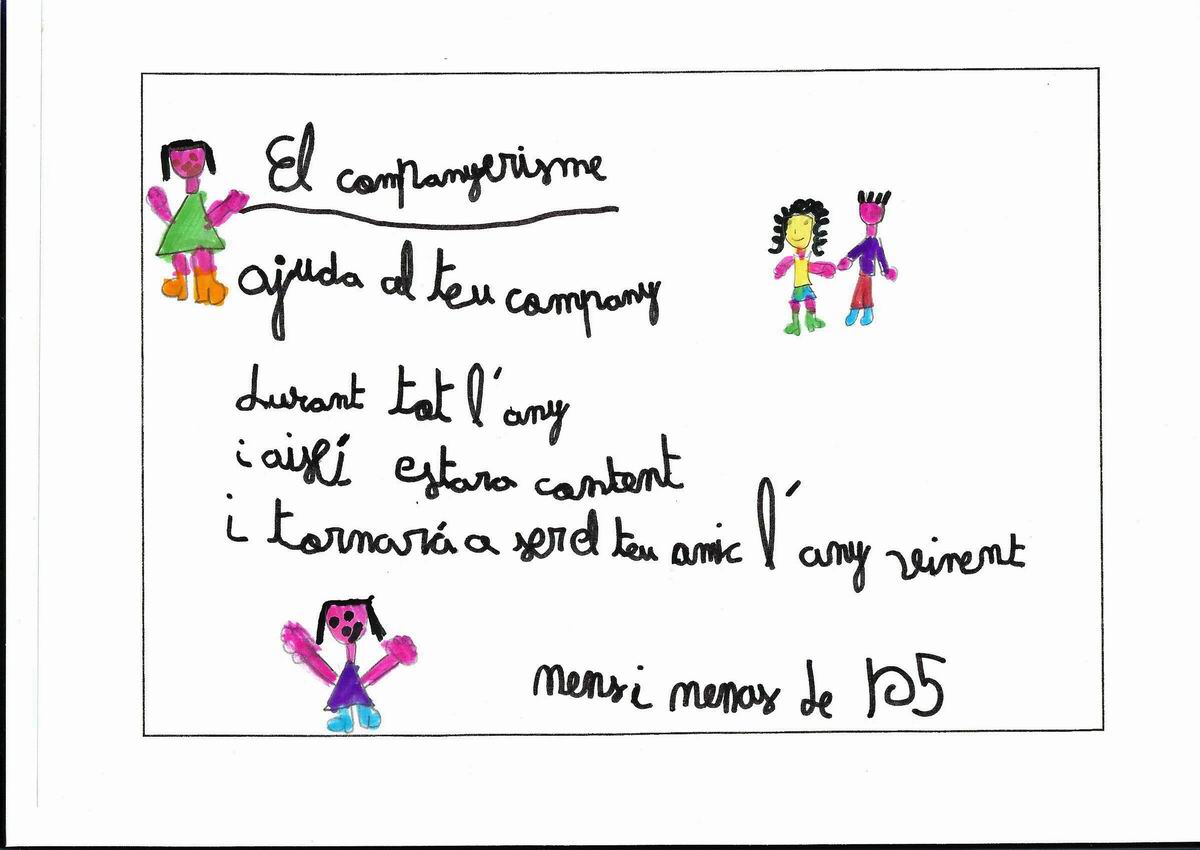 El companyerisme
ajuda al teu company
durant tot l'any
i aisí estara content
i tornará a ser el teu amic l'any veinent
nens i nenas de P5